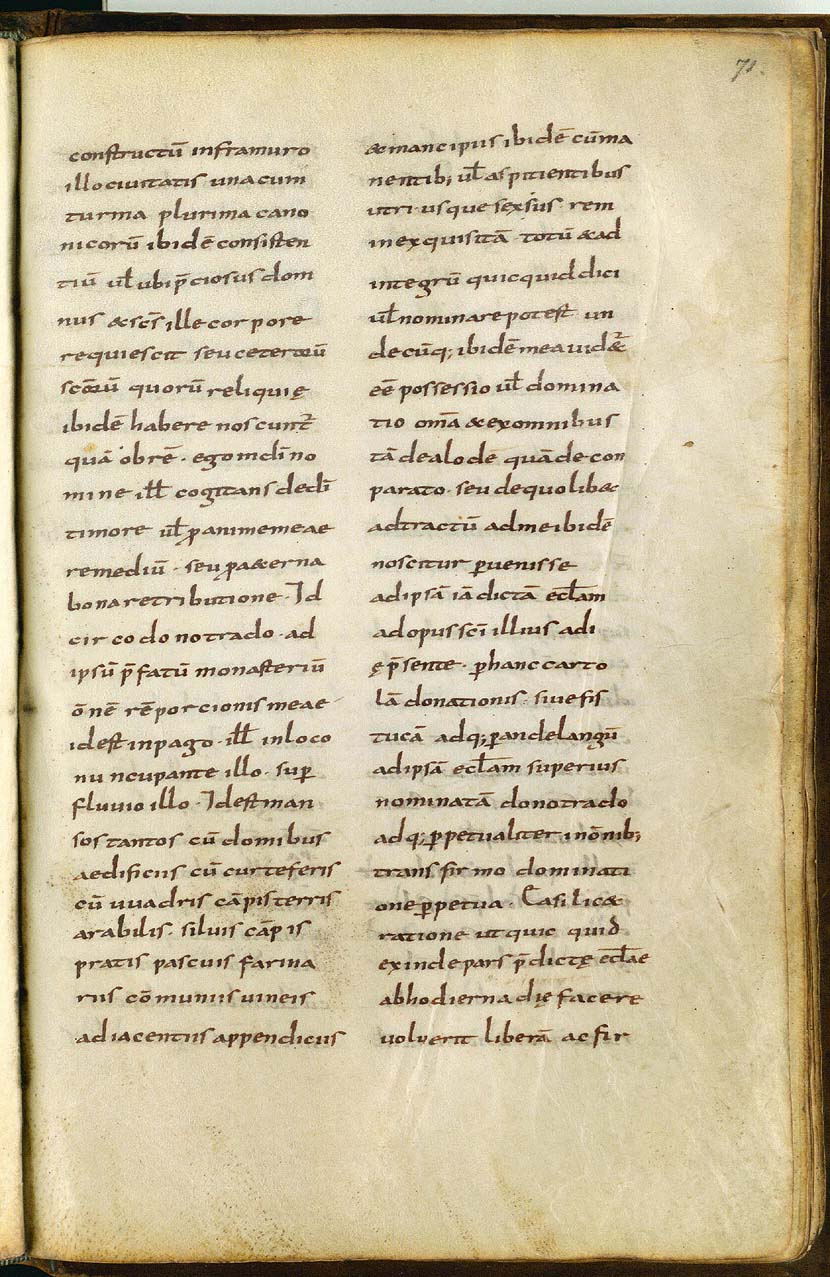 71.
constructū inframuro
illo ciuitatis unacum
turma plurima cano
nicorū ibidē consisten
tiū ul̄ ubi p̄ciosus dom
nus & sc̄s ille corpore
requiescit seu ceterorū
sc̄orū quorū reliquię
ibidē habere noscunt̄
quā obrē · ego indīno
mine ill̄ cogitans dedī
timore ul̄ ꝓ animemeae
remediū · seu ꝓ a&erna
bona retributione · Id
circo dono trado · ad
ipsū p̄fatū monasteriū
ōnē rē porcionis meae
idest inpago · ill̄ inloco
nuncupante illo · sup̄
fluuio illo · Idest man
sos tantos cū domibus
aedificiis cū curteferis
cū uuadris cāpis terris
arabilis · siluis cāpis
pratis pascuis farina
riis cōmunus uineis
adiacentiis appendiciis
& mancipiis ibidē cūma
nentib; ul̄ aspitientibus
utriusque sexsus rem
inexquisitā · totū & ad
integrū quicquid dici
ul̄ nominare potest un
decūq; ibidē mea uid&̄
eē possessio ul̄ domina
tio om̄a & exomnibus
tā de alode quā de con
parato · seu de quolib&
adtractū ad me ibidē
noscitur ꝑuenisse
adipsā iā dictā eccl̄am
ad opus sc̄i illius adi
ę p̄sente · ꝑ hanc carto
lā donationis · siue fis
tucā adq; ꝑ andelangū
adipsā eccl̄am superius
nominatā dono trado
adq; ꝑpetualiter inōnib;
transfirmo dominati
one ꝑpetua · Easilic&
ratione ut quic quid
exinde pars p̄dictę eccl̄ae
ab hodierna dię facere
voluerit liberā ac fir